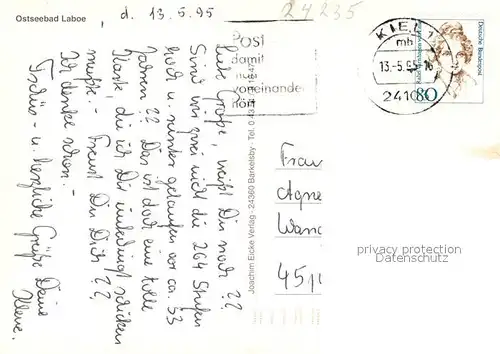 Ostseebad Laboe
, d. 13.5.95
24235
Liebe Große, weißt Du noch ??
Sind wir zwei nicht die 264 Stufen
hoch u. runter gelaufen vor ca. 53
Jahren ?? Das ist doch eine tolle
Karte, die ich Dir unbedingt schicken
mußte. - Freust Du Dich ??
Ich denke schon. -
Tschüs - u. herzliche Grüße Deine
Kleine.
Post
damit
wir
voneinander
hört
KIEL 1
mb
13.-5.95-16
24103
Deutsche Bundespost
80
Joachim Eicke Verlag - 24360 Barkelsby - Tel. 0 43
Frau
Agne
Wan
45
privacy protection
Datenschutz